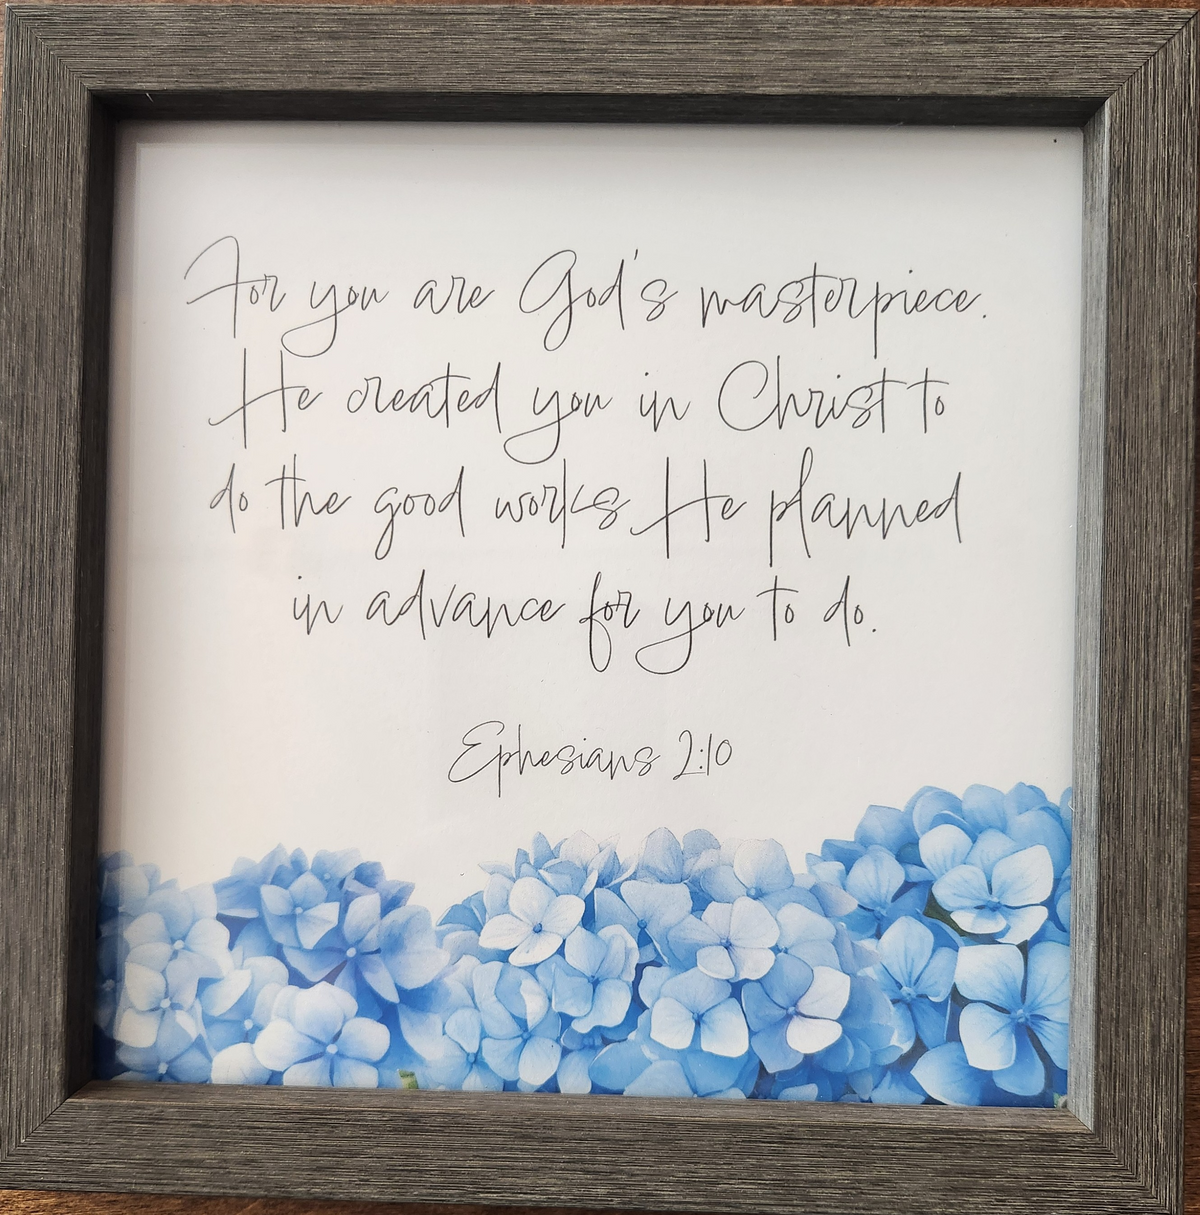 For you are God's masterpiece.
He created you in Christ to
do the good works He planned
in advance for you to do.
Ephesians 2:10